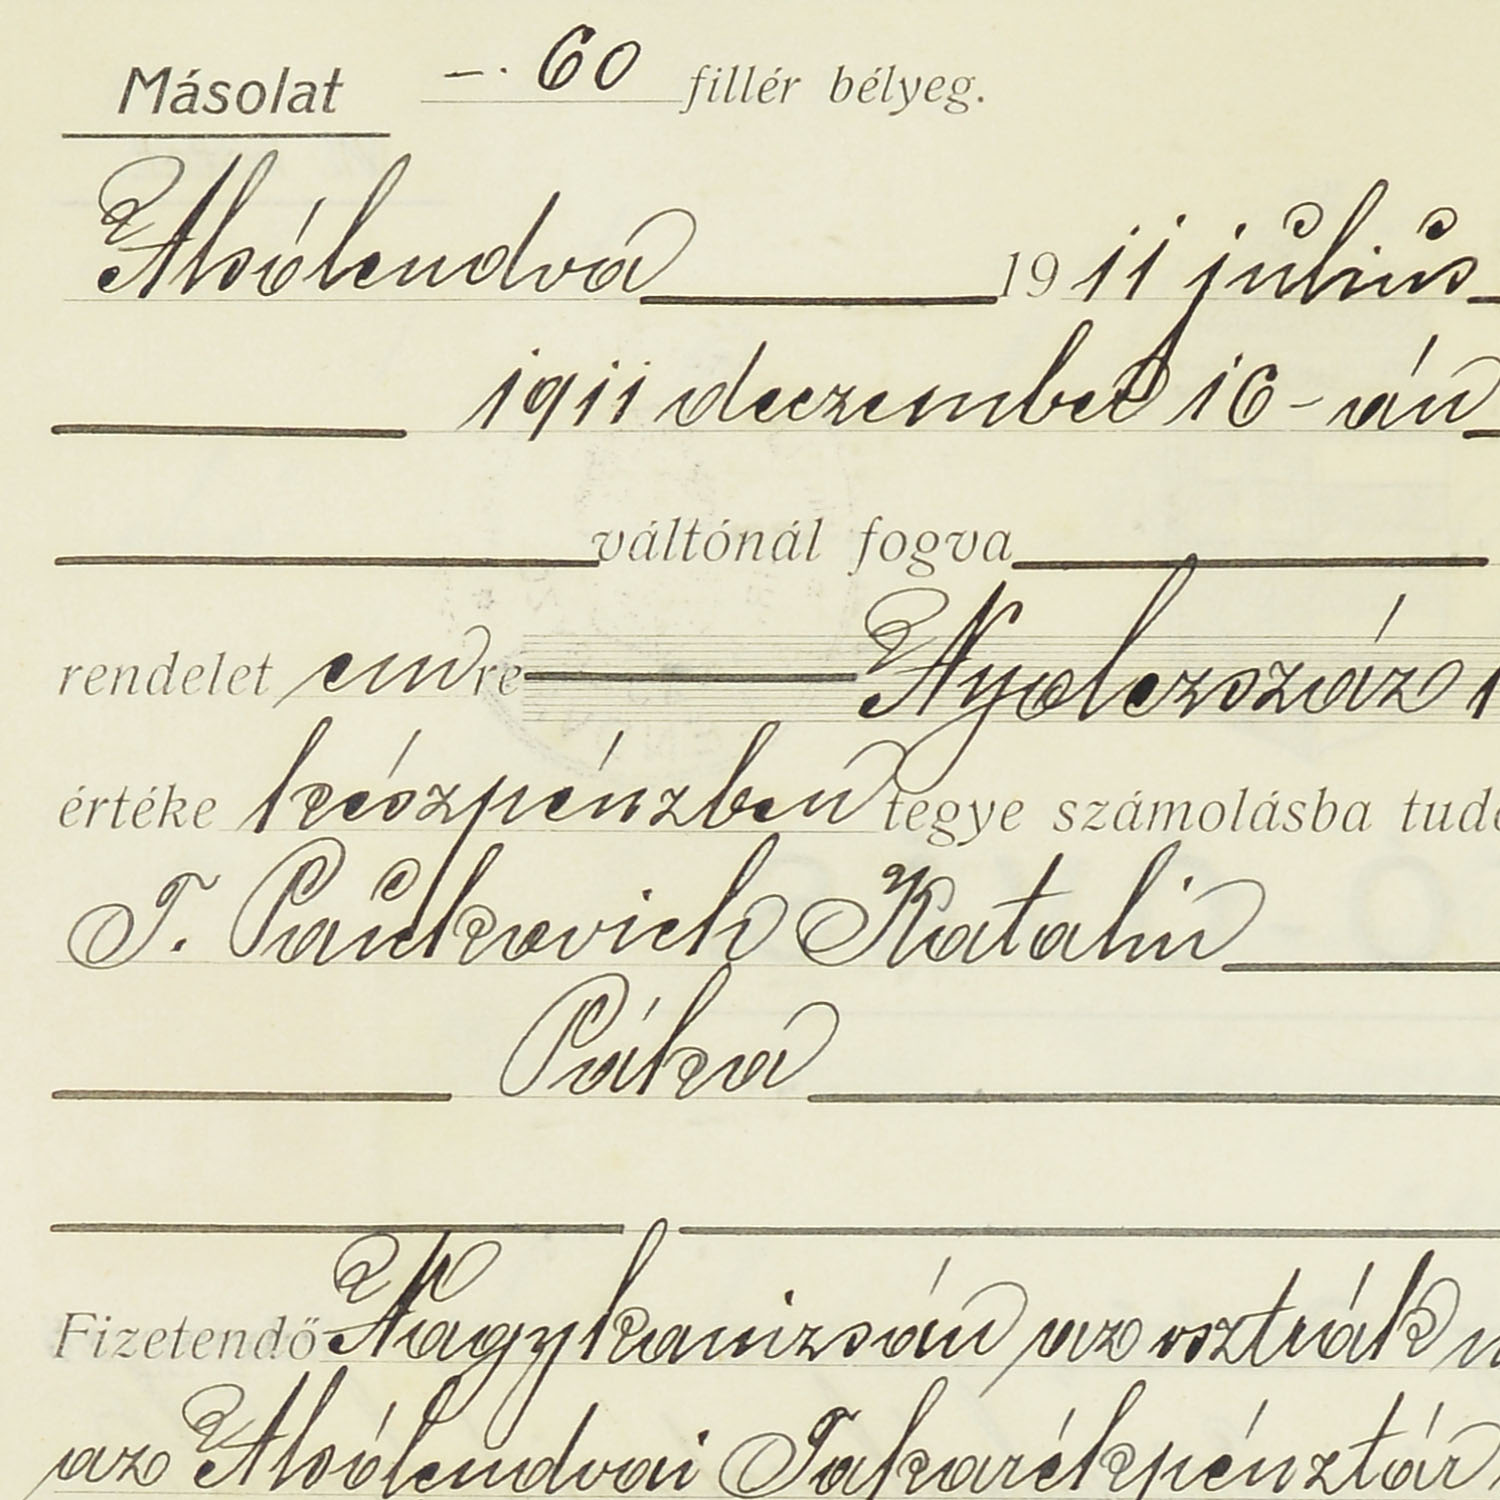 Másolat –. 60 fillér bélyeg.
Alsólendva 1911 július
1911 deczember 16-án
váltónál fogva
rendelet en re Nyolczszáz
értéke készpénzben tegye számolásba
T. Paukovich Katalin
Páka
Fizetendő Nagykanizsán az osztrák
az Alsólendvai Takarékpénztár